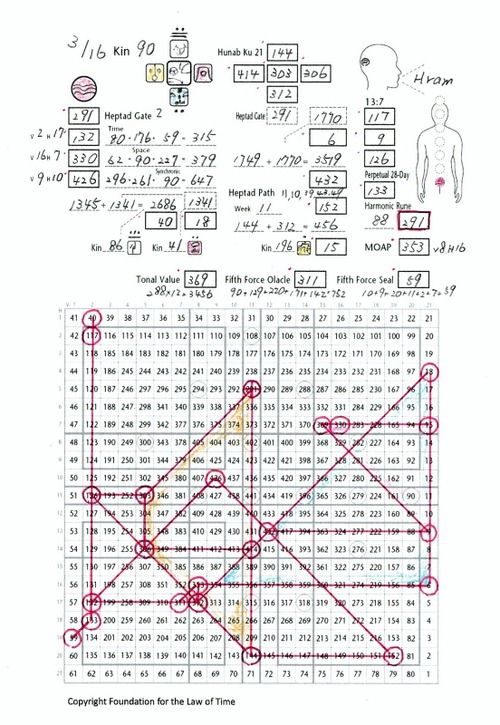 3/16 Kin 90
Hunab Ku 21 144
414 303 306
312
Hram
291 Heptad Gate 2
Heptad Gate 291 1770
13:7
117
v2 H17 132 Time 80·176·59=315
6
9
v16H7 330 Space 62·90·227=379
1749+1770=3519
126
v9H10 426 Synchronic 296·261·90=647
432
Perpetual 28-Day
133
1345+1341=2686 1341
Heptad Path
Week 11 152
Harmonic Rune
88 291
40 18
144+312=456
Kin 86 Kin 41
Kin 196 15
MOAP 353 v8H16
Tonal Value 369 Fifth Force Olacle 311 Fifth Force Seal 59
288×12=3456 90+129+220+171+142=752 10+9+20+11+2+7=59
41 40 39 38 37 36 35 34 33 32 31 30 29 28 27 26 25 24 23 22 21
42 117 116 115 114 113 112 111 110 109 108 107 106 105 104 103 102 101 100 99 20
43 118 185 184 183 182 181 180 179 178 177 176 175 174 173 172 171 170 169 98 19
44 119 186 245 244 243 242 241 240 239 238 237 236 235 234 233 232 231 168 97 18
45 120 187 246 297 296 295 294 293 292 291 290 289 288 287 286 285 230 167 96 17
46 121 188 247 298 341 340 339 338 337 336 335 334 333 332 331 284 229 166 95 16
47 122 189 248 299 342 377 376 375 374 373 372 371 370 369 330 283 228 165 94 15
48 123 190 249 300 343 378 405 404 403 402 401 400 399 368 329 282 227 164 93 14
49 124 191 250 301 344 379 406 425 424 423 422 421 398 367 328 281 226 163 92 13
50 125 192 251 302 345 380 407 426 437 436 435 420 397 366 327 280 225 162 91 12
51 126 193 252 303 346 381 408 427 438 441 434 419 396 365 326 279 224 161 90 11
52 127 194 253 304 347 382 409 428 439 440 433 418 395 364 325 278 223 160 89 10
53 128 195 254 305 348 383 410 429 430 431 432 417 394 363 324 277 222 159 88 9
54 129 196 255 306 349 384 411 412 413 414 415 416 393 362 323 276 221 158 87 8
55 130 197 256 307 350 385 386 387 388 389 390 391 392 361 322 275 220 157 86 7
56 131 198 257 308 351 352 353 354 355 356 357 358 359 360 321 274 219 156 85 6
57 132 199 258 309 310 311 312 313 314 315 316 317 318 319 320 273 218 155 84 5
58 133 200 259 260 261 262 263 264 265 266 267 268 269 270 271 272 217 154 83 4
59 134 201 202 203 204 205 206 207 208 209 210 211 212 213 214 215 216 153 82 3
60 135 136 137 138 139 140 141 142 143 144 145 146 147 148 149 150 151 152 81 2
61 62 63 64 65 66 67 68 69 70 71 72 73 74 75 76 77 78 79 80 1
Copyright Foundation for the Law of Time